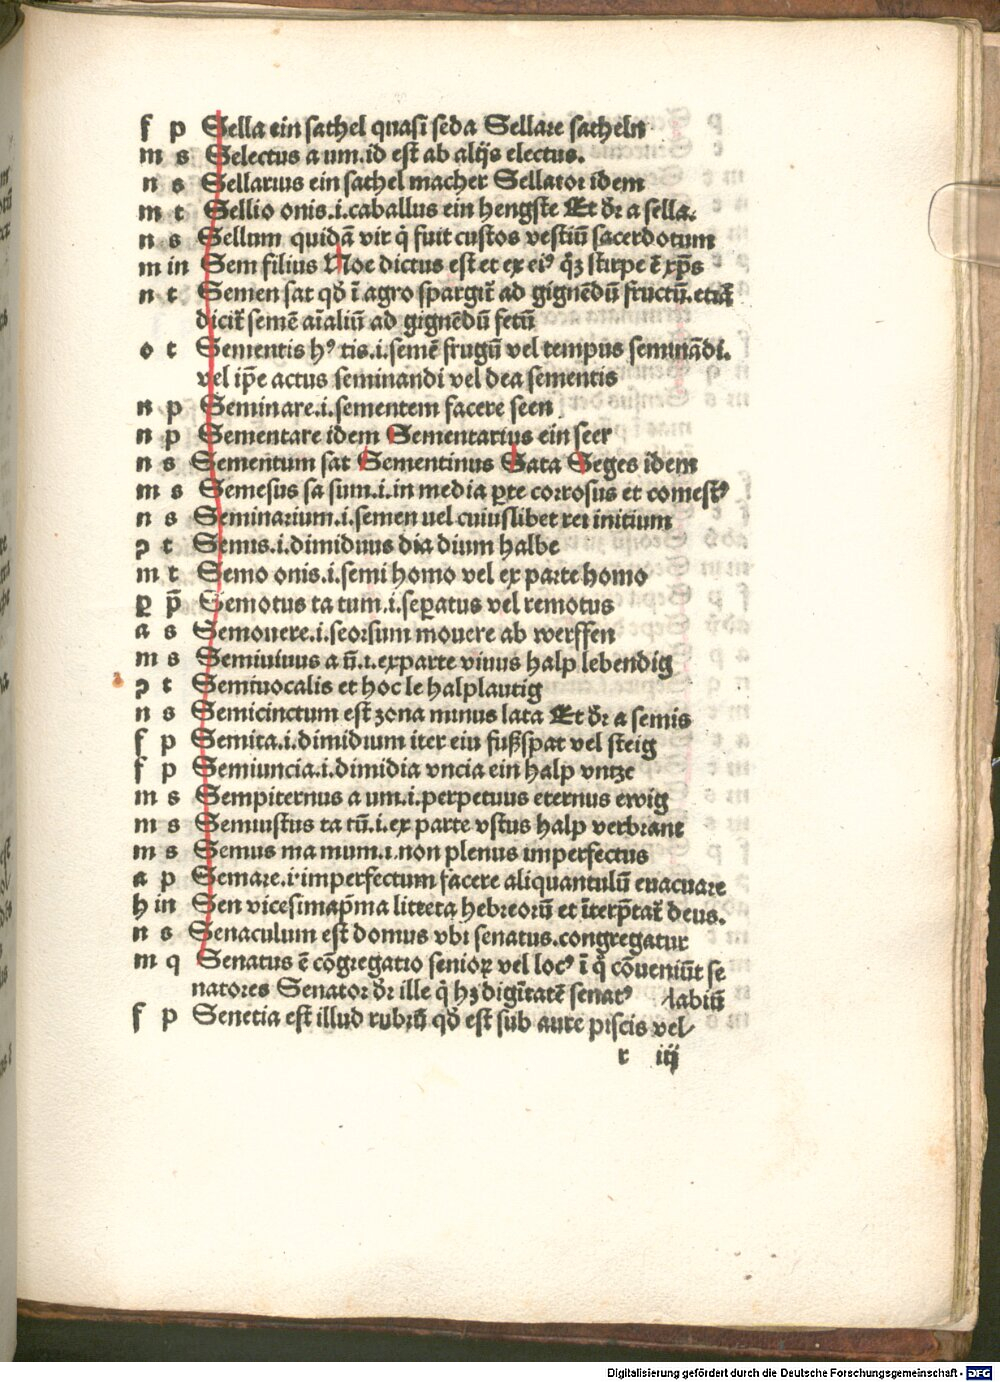 f p Sella ein sathel quasi seda Sellare satheln
m s Selectus a um.id est ab alijs electus.
n s Sellarius ein sathel macher Sellator idem
m t Sellio onis.i.caballus ein hengste Et dr̄ a sella.
n s Sellum quidā vir q̇ fuit custos vestiū sacerdotum
m in Sem filius Noe dictus est et ex eiꝰ q̇ꝫ stirpe ē xp̄s
n t Semen sat qḋ ī agro spargit̄ ad gignēdū fructū.etiā
dicit̄ semē aīaliū ad gignēdū fetū
o t Sementis hꝰ tis.i.semē frugū vel tempus semināḋi.
vel ip̄e actus seminandi vel dea sementis
n p Seminare.i.sementem facere seen
n p Sementare idem Sementarius ein seer
n s Sementum sat Sementinus Sata Seges idem
m s Semesus sa sum.i.in media ꝑte corrosus et comestꝰ
n s Seminarium.i.semen uel cuiuslibet rei initium
ꝯ t Semis.i.dimidius dia dium halbe
m t Semo onis.i.semi homo vel ex parte homo
ꝑ p̄ Semotus ta tum.i.seꝑatus vel remotus
a s Semouere.i.seorsum mouere ab werffen
m s Semiuiuus a ū.i.exparte viuus halp lebendig
ꝯ t Semiuocalis et hoc le halplautig
n s Semicinctum est zona minus lata Et dr̄ a semis
f p Semita.i.dimidium iter ein fußspat vel steig
f p Semiuncia.i.dimidia vncia ein halp vntze
m s Sempiternus a um.i.perpetuus eternus ewig
m s Semiustus ta tū.i.ex parte vstus halp verbrant
m s Semus ma mum.i.non plenus imperfectus
a p Semare.i.imperfectum facere aliquantulū euacuare
h in Sen vicesimap̄ma littera hebreorū et īterp̄tat̄ deus.
n s Senaculum est domus vbi senatus.congregatur
m q Senatus ē cōgregatio senioꝝ vel locꝰ ī q̇ cōueniūt se
natores Senator dr̄ ille q̇ hꝫ digītatē senatꝰ /labiū
f p Senetia est illud rubrū qḋ est sub aure piscis vel/
r iij
Digitalisierung gefördert durch die Deutsche Forschungsgemeinschaft - DFG